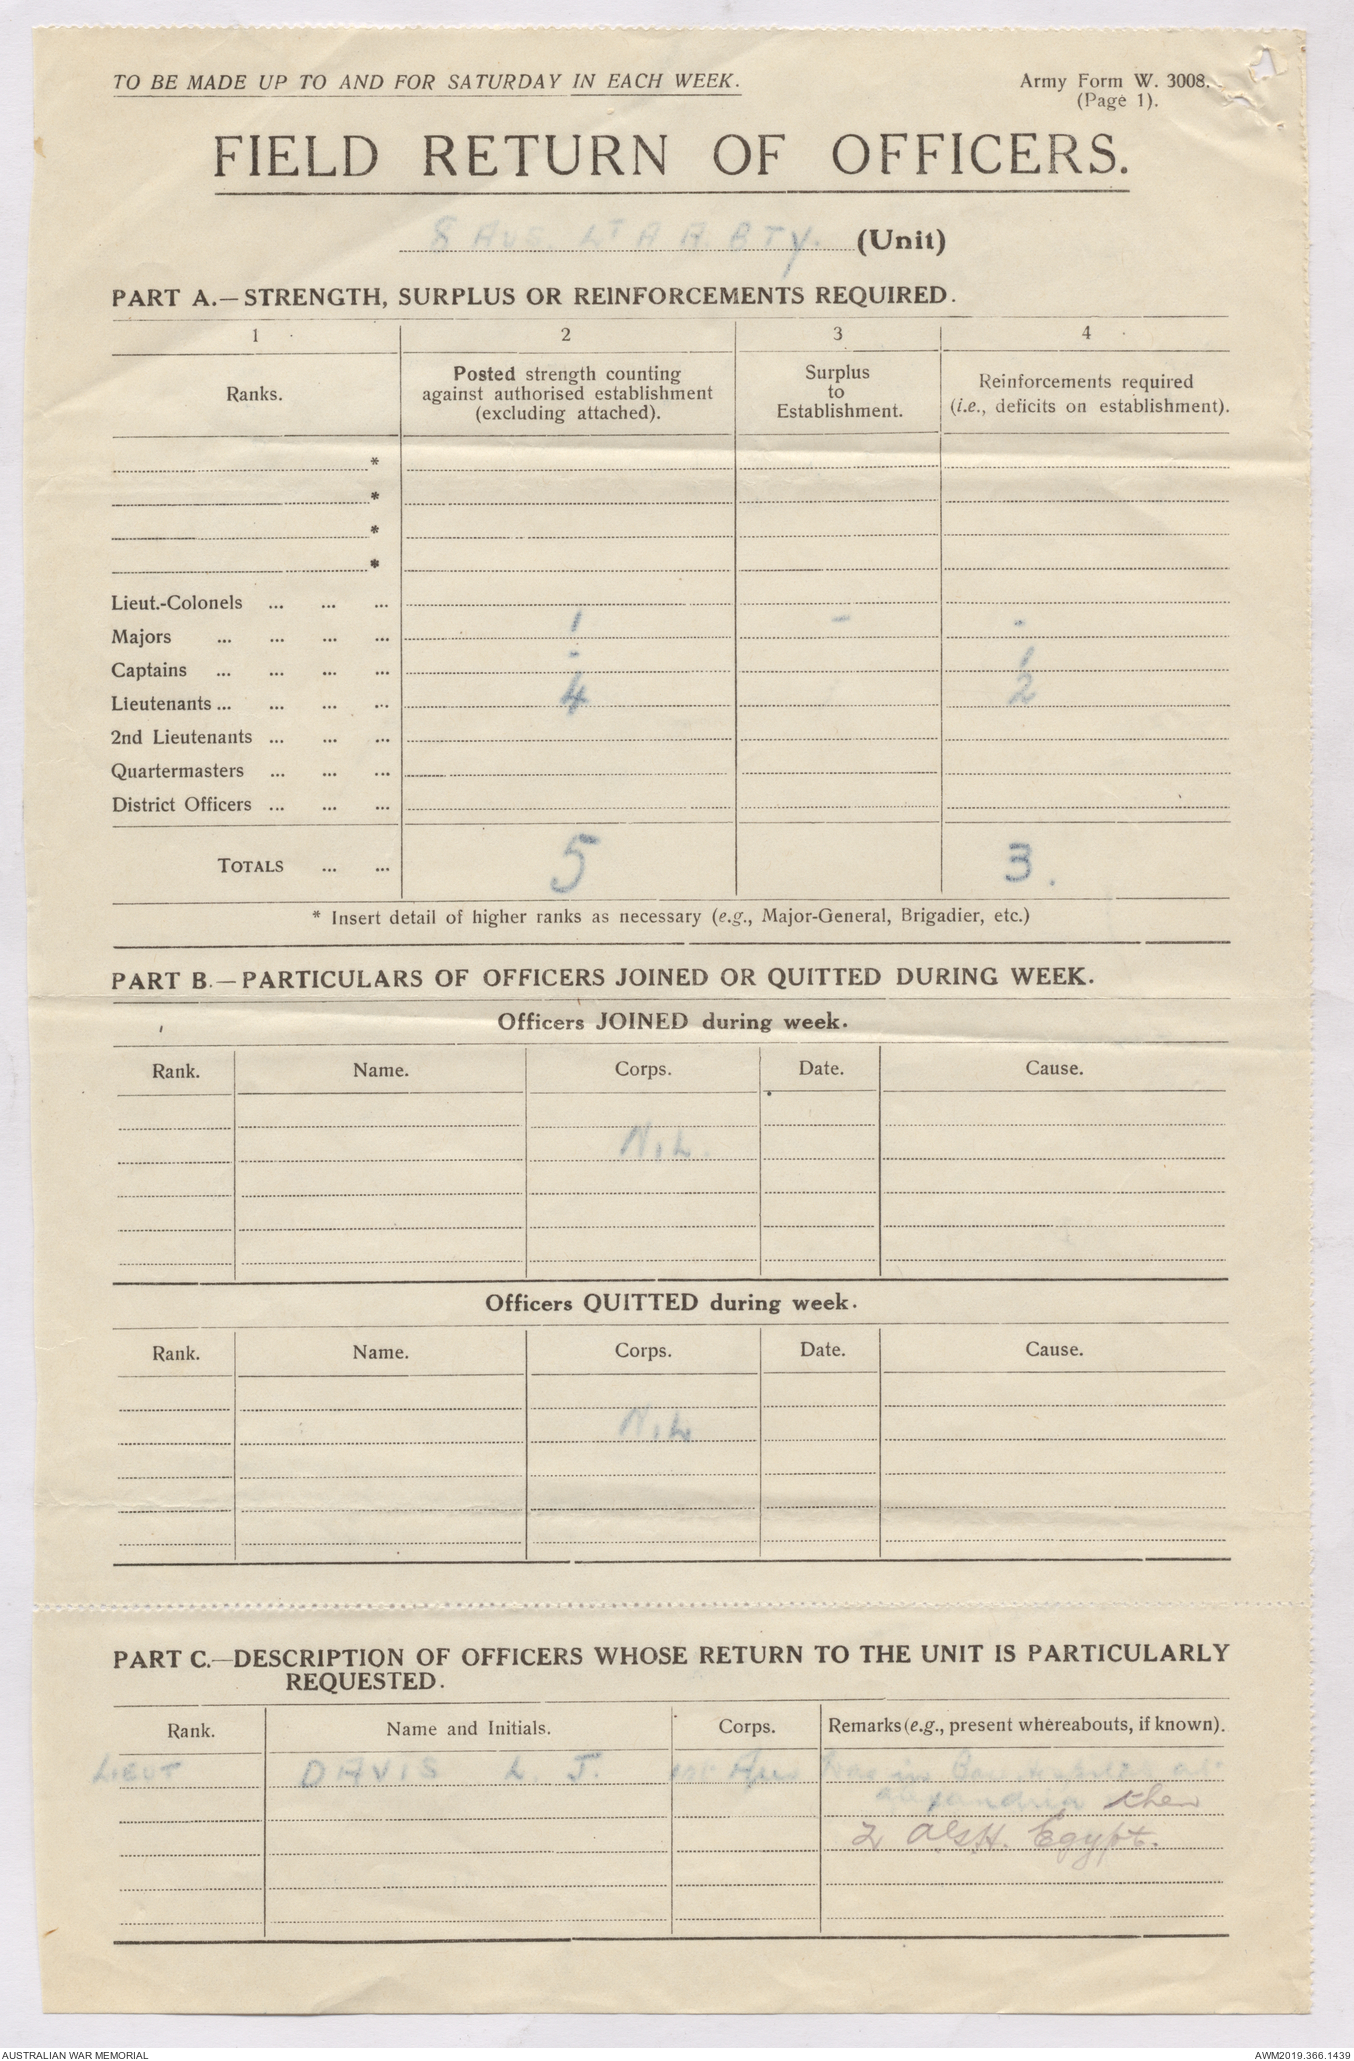 TO BE MADE UP TO AND FOR SATURDAY IN EACH WEEK.
Army Form W. 3008.
(Page 1).
FIELD RETURN OF OFFICERS.
8 AUS. LT A A BTY. (Unit)
PART A.—STRENGTH, SURPLUS OR REINFORCEMENTS REQUIRED.
1 2 3 4
Ranks. Posted strength counting against authorised establishment (excluding attached). Surplus to Establishment. Reinforcements required (i.e., deficits on establishment).
*
*
*
*
Lieut.-Colonels ... ... ...
Majors ... ... ... ... 1 - -
Captains ... ... ... ... - 1
Lieutenants ... ... ... ... 4 2
2nd Lieutenants ... ... ...
Quartermasters ... ... ...
District Officers ... ... ...
TOTALS ... ... 5 3.
* Insert detail of higher ranks as necessary (e.g., Major-General, Brigadier, etc.)
PART B.—PARTICULARS OF OFFICERS JOINED OR QUITTED DURING WEEK.
Officers JOINED during week.
Rank. Name. Corps. Date. Cause.
NiL.
Officers QUITTED during week.
Rank. Name. Corps. Date. Cause.
NiL
PART C.—DESCRIPTION OF OFFICERS WHOSE RETURN TO THE UNIT IS PARTICULARLY
REQUESTED.
Rank. Name and Initials. Corps. Remarks (e.g., present whereabouts, if known).
LIEUT DAVIS L. J. 1st Aus Was in at
alexandria then
2 AGH. Egypt.
AUSTRALIAN WAR MEMORIAL
AWM2019.366.1439